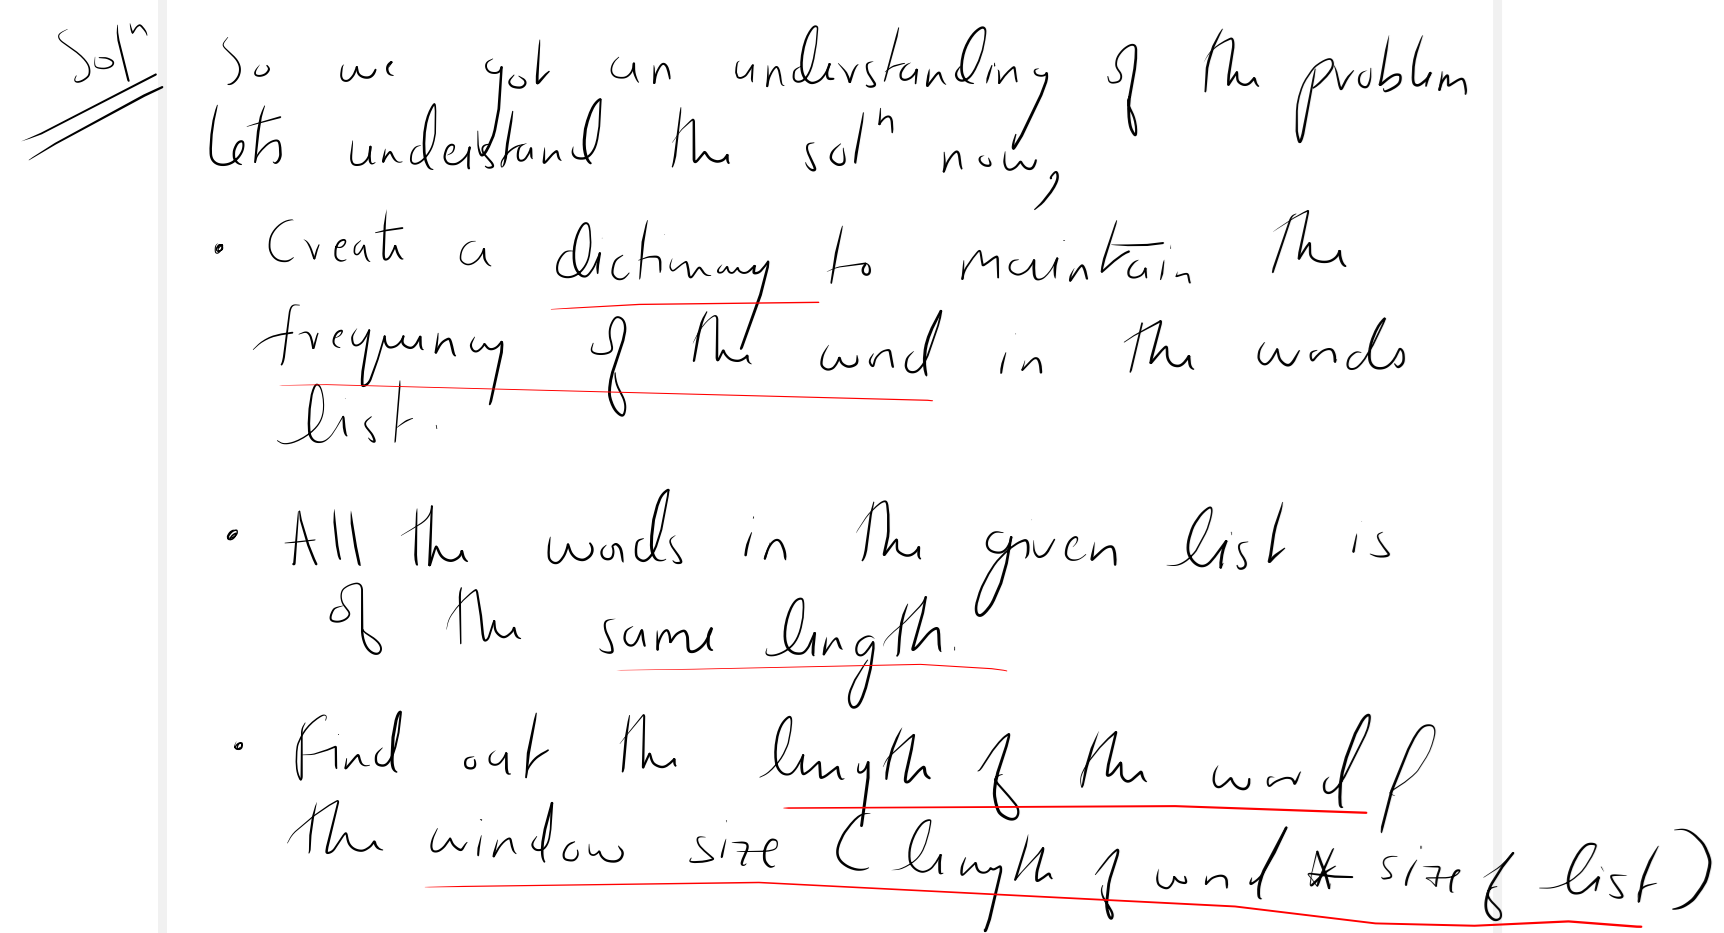 Solⁿ So we got an understanding of the problem
Lets understand the solⁿ now,
• Create a dictionary to maintain the
frequency of the word in the words
list.
• All the words in the given list is
of the same length.
• Find out the length of the word &
the window size (length of word * size of list)